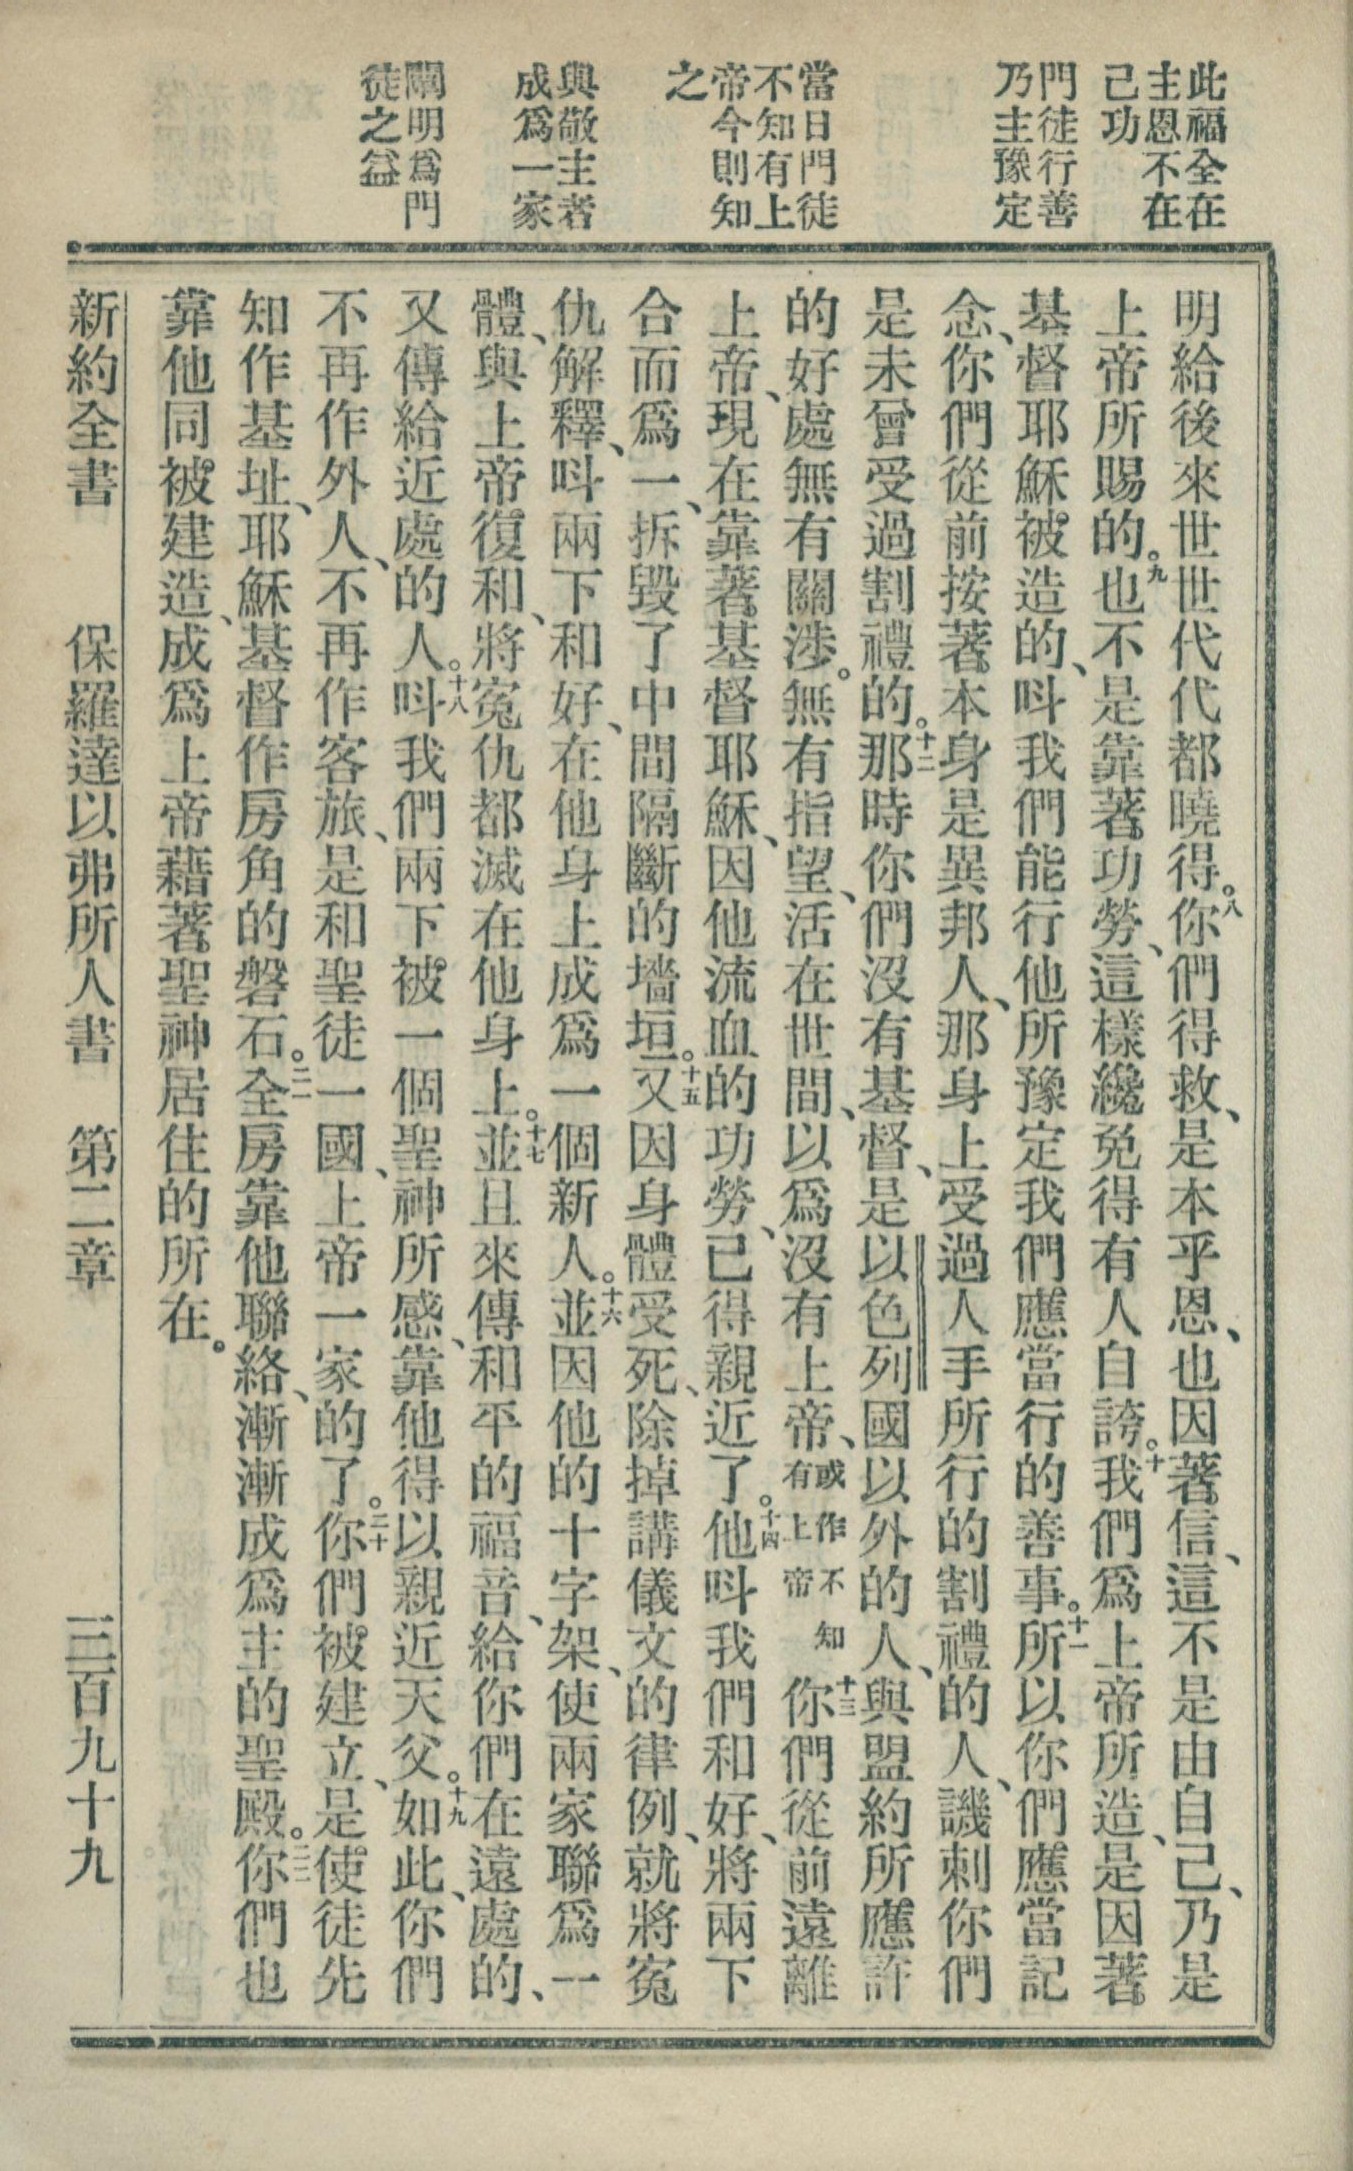 此福全在
主恩不在
己功
門徒行善
乃主豫定
當日門徒
不知有上
帝今則知
之
與敬主者
成爲一家
闡明爲門
徒之益
明給後來世世代代都曉得。八你們得救、是本乎恩、也因著信、這不是由自己、乃是
上帝所賜的。九也不是靠著功勞、這樣纔免得有人自誇。十我們爲上帝所造、是因著
基督耶穌被造的、呌我們能行他所豫定我們應當行的善事。十一所以你們應當記
念、你們從前按著本身是異邦人、那身上受過人手所行的割禮的人、譏刺你們
是未曾受過割禮的。十二那時你們沒有基督、是以色列國以外的人、與盟約所應許
的好處無有關涉。無有指望、活在世間、以爲沒有上帝、或作不知有上帝十三你們從前遠離
上帝、現在靠著基督耶穌、因他流血的功勞、已得親近了。十四他呌我們和好、將兩下
合而爲一、拆毀了中間隔斷的墻垣。十五又因身體受死、除掉講儀文的律例、就將寃
仇解釋、呌兩下和好、在他身上成爲一個新人。十六並因他的十字架、使兩家聯爲一
體、與上帝復和、將寃仇都滅在他身上。十七並且來傳和平的福音、給你們在遠處的、
又傳給近處的人。十八呌我們兩下被一個聖神所感、靠他得以親近天父。十九如此、你們
不再作外人、不再作客旅、是和聖徒一國、上帝一家的了。二十你們被建立、是使徒先
知作基址、耶穌基督作房角的磐石。二一全房靠他聯絡、漸漸成爲主的聖殿。二二你們也
靠他同被建造、成爲上帝藉著聖神居住的所在。
新約全書 保羅達以弗所人書 第二章 三百九十九